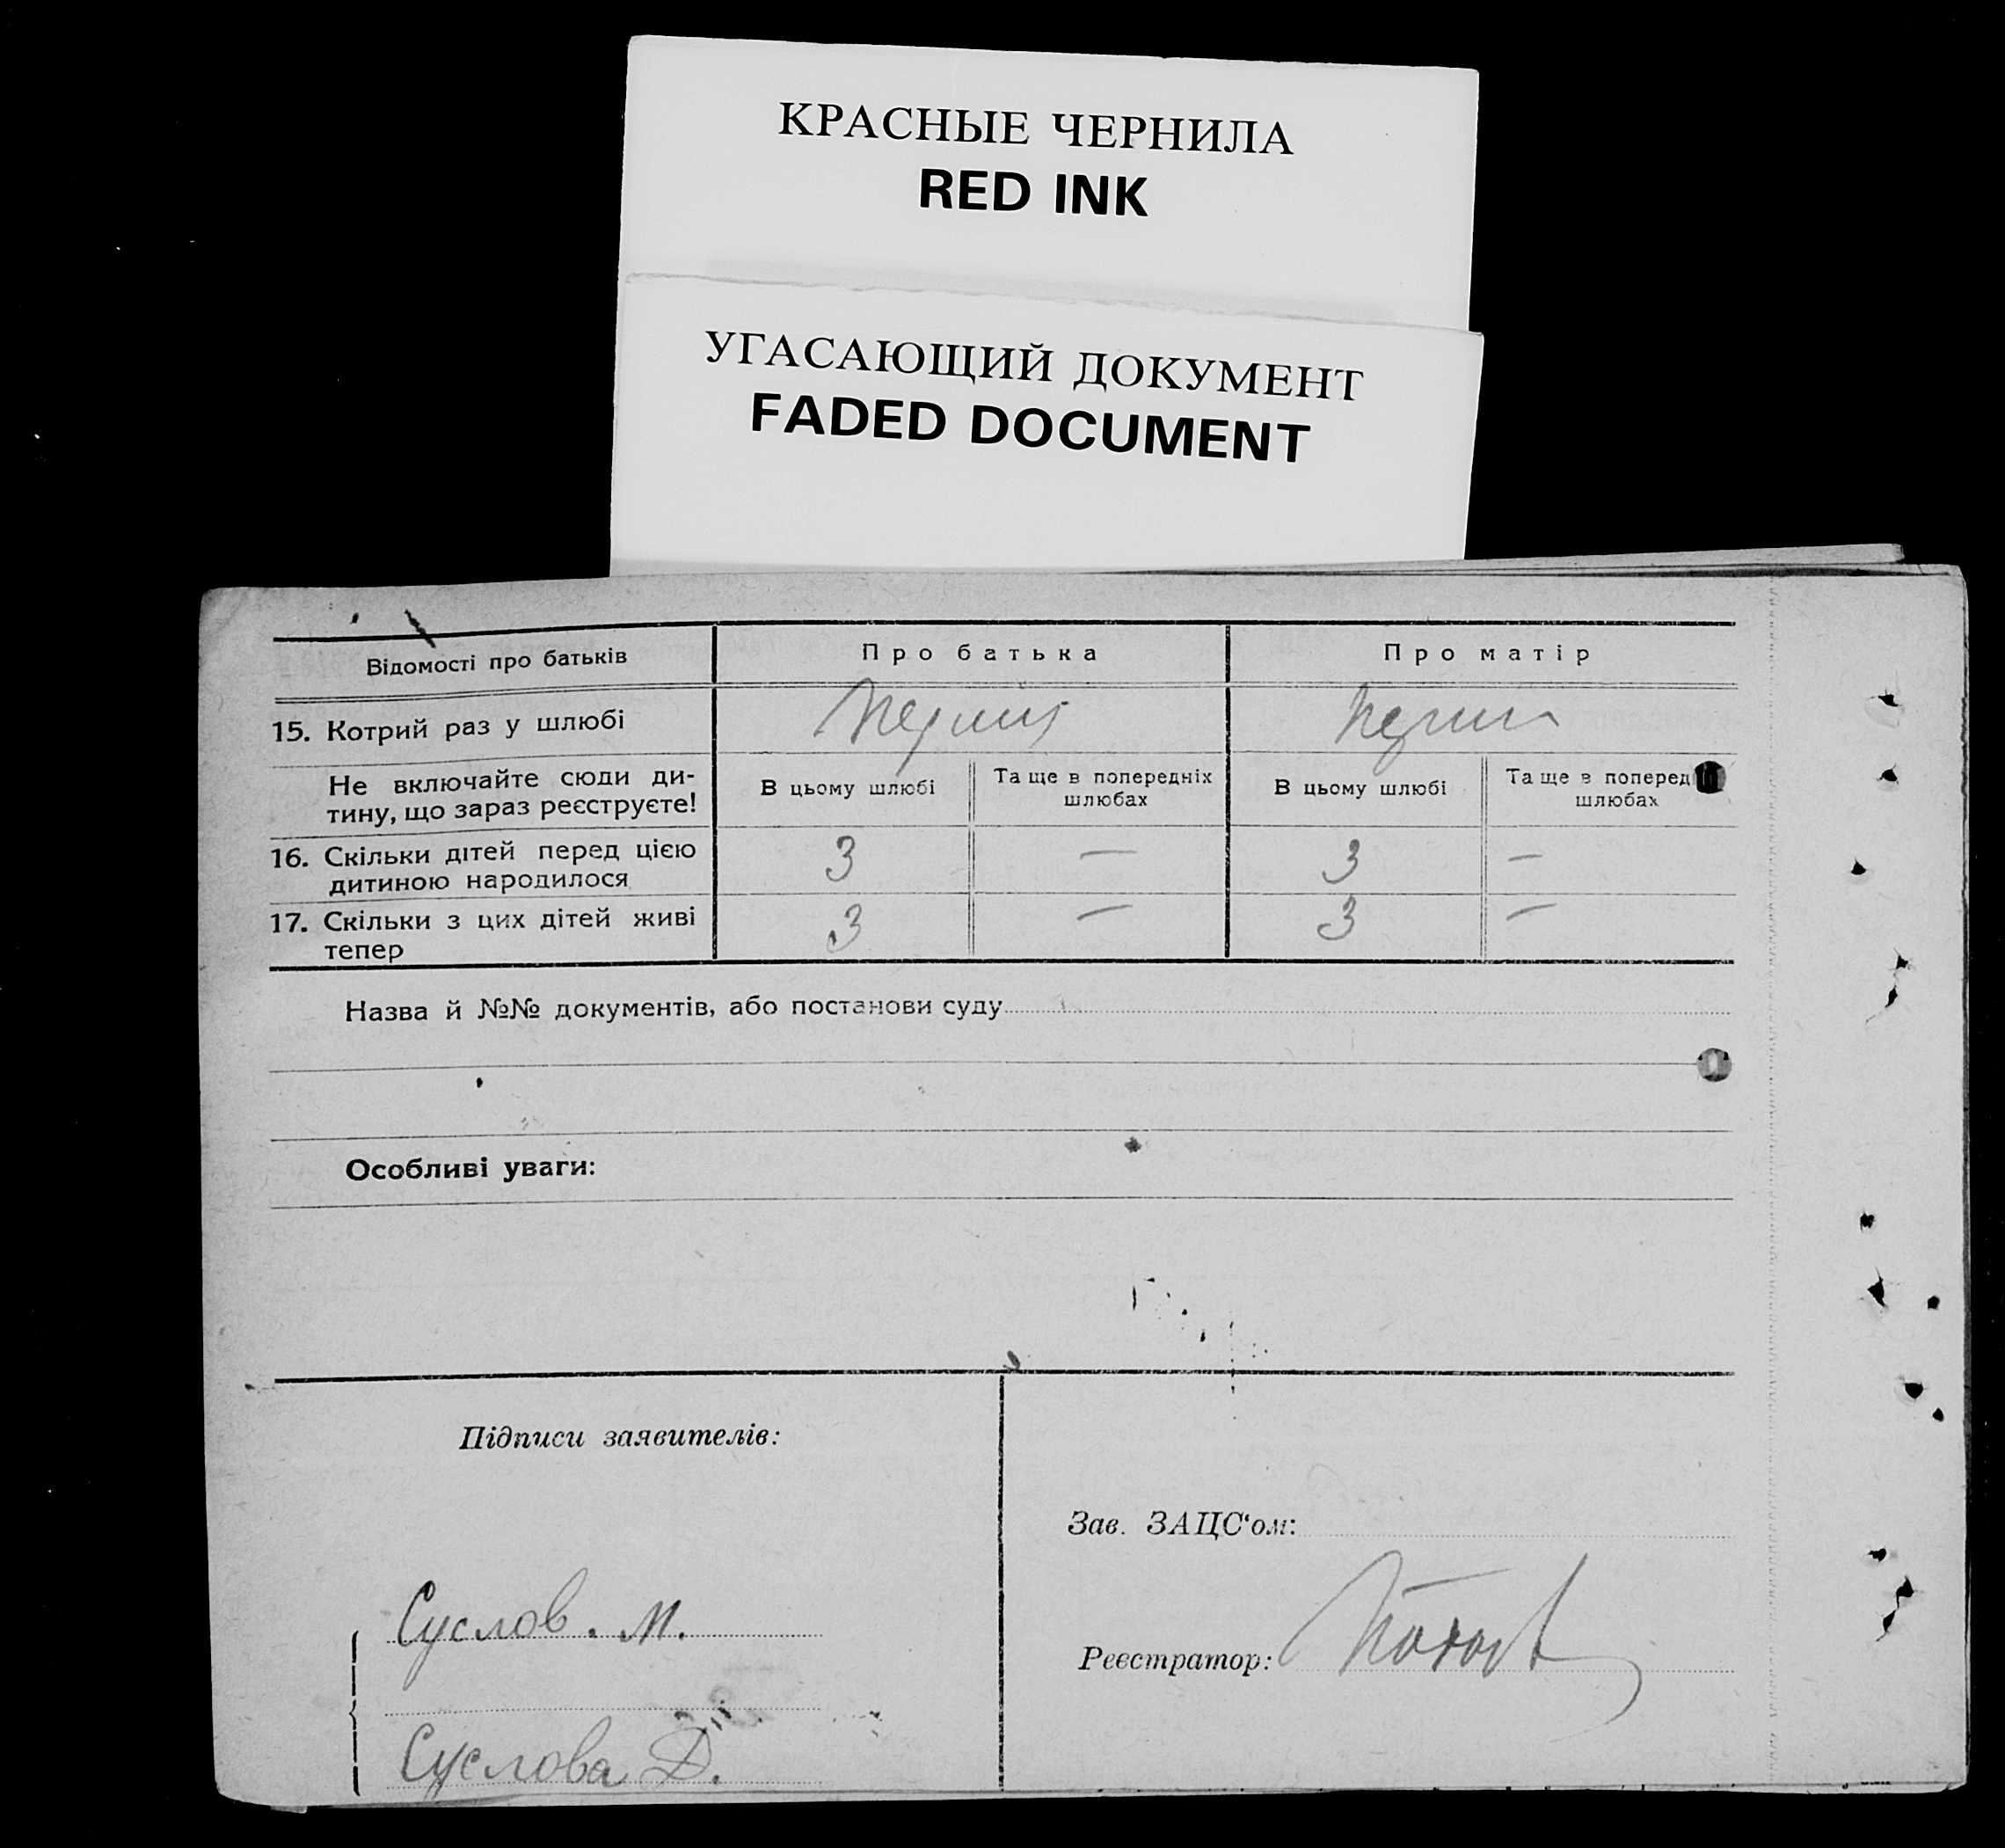 КРАСНЫЕ ЧЕРНИЛА
RED INK
УГАСАЮЩИЙ ДОКУМЕНТ
FADED DOCUMENT
Відомості про батьків
Про батька
Про матір
15. Котрий раз у шлюбі
перший
перший
Не включайте сюди ди-
тину, що зараз реєструєте!
В цьому шлюбі
Та ще в попередніх
шлюбах
В цьому шлюбі
Та ще в поперед
шлюбах
16. Скільки дітей перед цією
дитиною народилося
3 — 3 —
17. Скільки з цих дітей живі
тепер
3 — 3 —
Назва й №№ документів, або постанови суду
Особливі уваги:
Підписи заявителів:
Зав. ЗАЦС'ом:
Суслов. М.
Реєстратор:
Суслова Д.